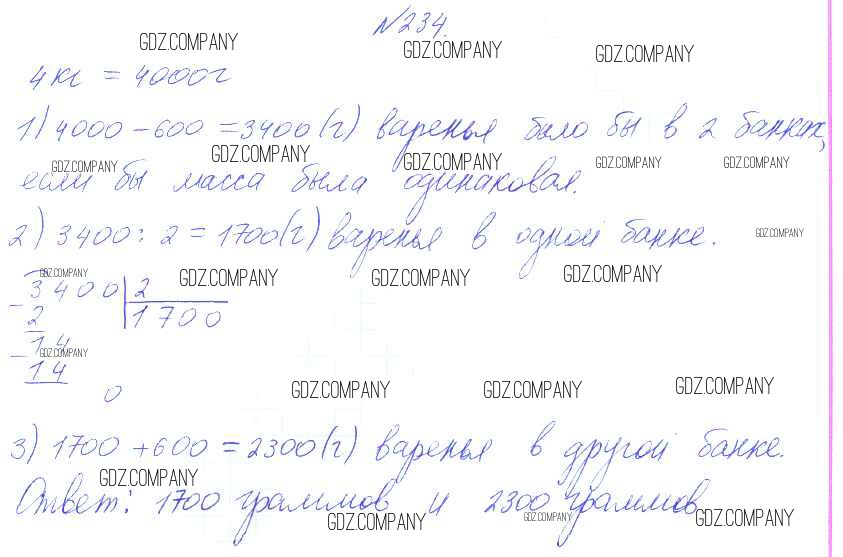 №234.
GDZ.COMPANY GDZ.COMPANY GDZ.COMPANY
4 кг = 4000г
1) 4000 - 600 = 3400 (г) варенья было бы в 2 банках,
GDZ.COMPANY GDZ.COMPANY GDZ.COMPANY GDZ.COMPANY GDZ.COMPANY
если бы масса была одинаковая.
2) 3400 : 2 = 1700 (г) варенья в одной банке.
GDZ.COMPANY
GDZ.COMPANY GDZ.COMPANY GDZ.COMPANY GDZ.COMPANY
- 3400 | 2
2 | 1700
- 14
GDZ.COMPANY
14
0
GDZ.COMPANY GDZ.COMPANY GDZ.COMPANY
3) 1700 + 600 = 2300 (г) варенья в другой банке.
GDZ.COMPANY
Ответ: 1700 граммов и 2300 граммов
GDZ.COMPANY GDZ.COMPANY GDZ.COMPANY